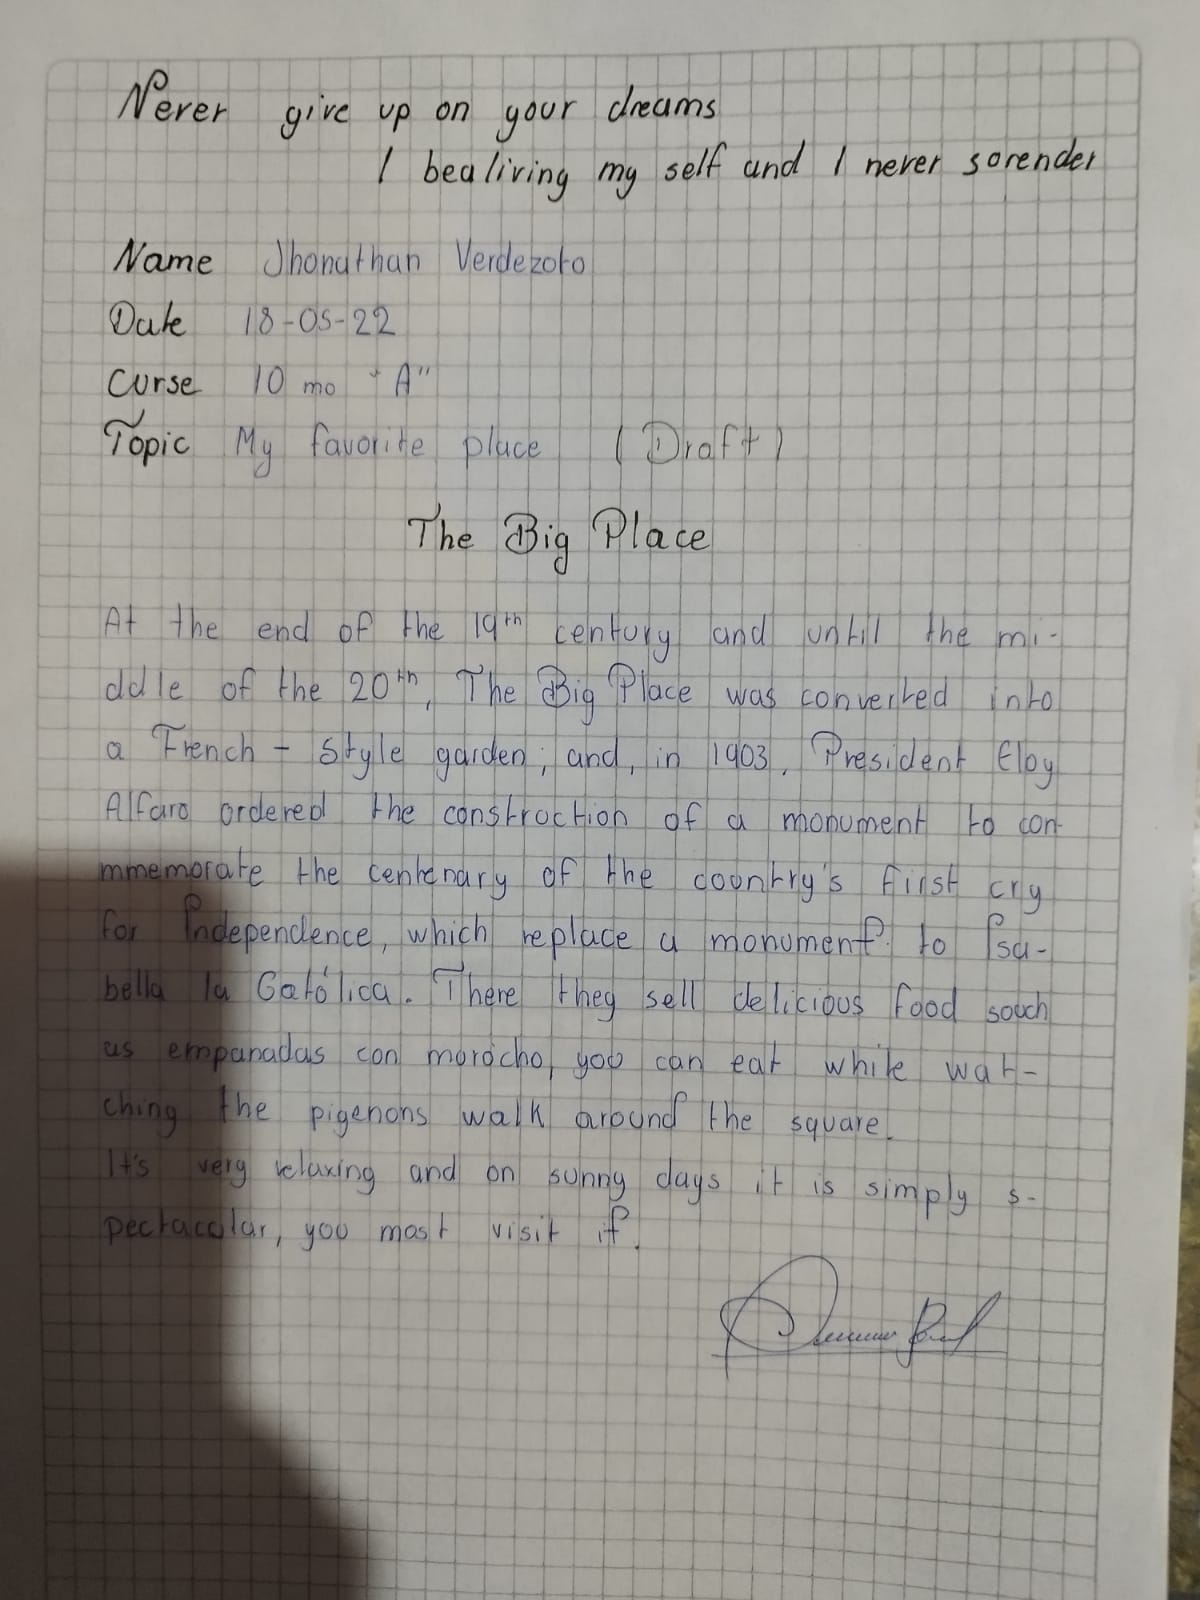 Never give up on your dreams
I bealiving my self and I never sorender
Name Jhonathan Verdezoto
Date 18-05-22
Curse 10 mo "A"
Topic My favorite place (Draft)
The Big Place
At the end of the 19th century and until the mi-
ddle of the 20th, The Big Place was converted into
a French - Style garden; and, in 1903, President Eloy
Alfaro ordered the construction of a monument to con-
mmemorate the centenary of the country's first cry
for Independence, which replace a monument to Isa-
bella la Católica. There they sell delicious food souch
as empanadas con morocho, you can eat while wat-
ching the pigenons walk around the square.
It's very relaxing and on sunny days it is simply s-
pectacular, you most visit it.